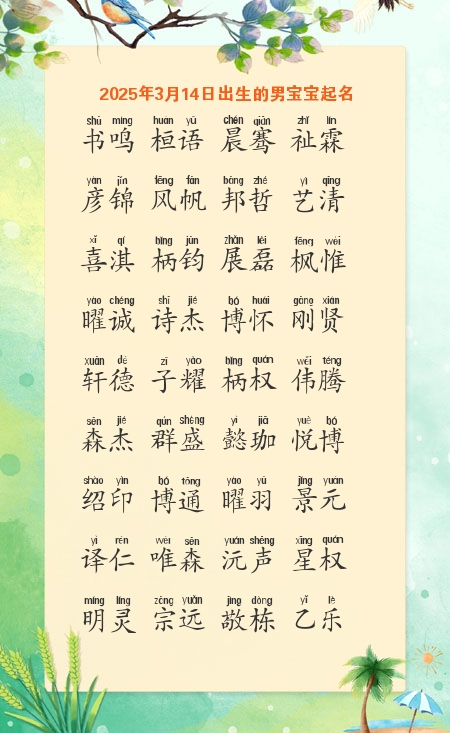 2025年3月14日出生的男宝宝起名
shū míng huán yǔ chén qiān zhǐ lín
书鸣 桓语 晨骞 祉霖
yàn jǐn fēng fān bāng zhé yì qīng
彦锦 风帆 邦哲 艺清
xǐ qí bǐng jūn zhǎn lěi fēng wéi
喜淇 柄钧 展磊 枫惟
yào chéng shī jié bó huái gāng xián
曜诚 诗杰 博怀 刚贤
xuān dé zǐ yào bǐng quán wěi téng
轩德 子耀 柄权 伟腾
sēn jié qún shèng yì jiā yuè bó
森杰 群盛 懿珈 悦博
shào yìn bó tōng yào yǔ jǐng yuán
绍印 博通 曜羽 景元
yì rén wéi sēn yuán shēng xīng quán
译仁 唯森 沅声 星权
míng líng zōng yuǎn jìng dòng yǐ lè
明灵 宗远 敬栋 乙乐